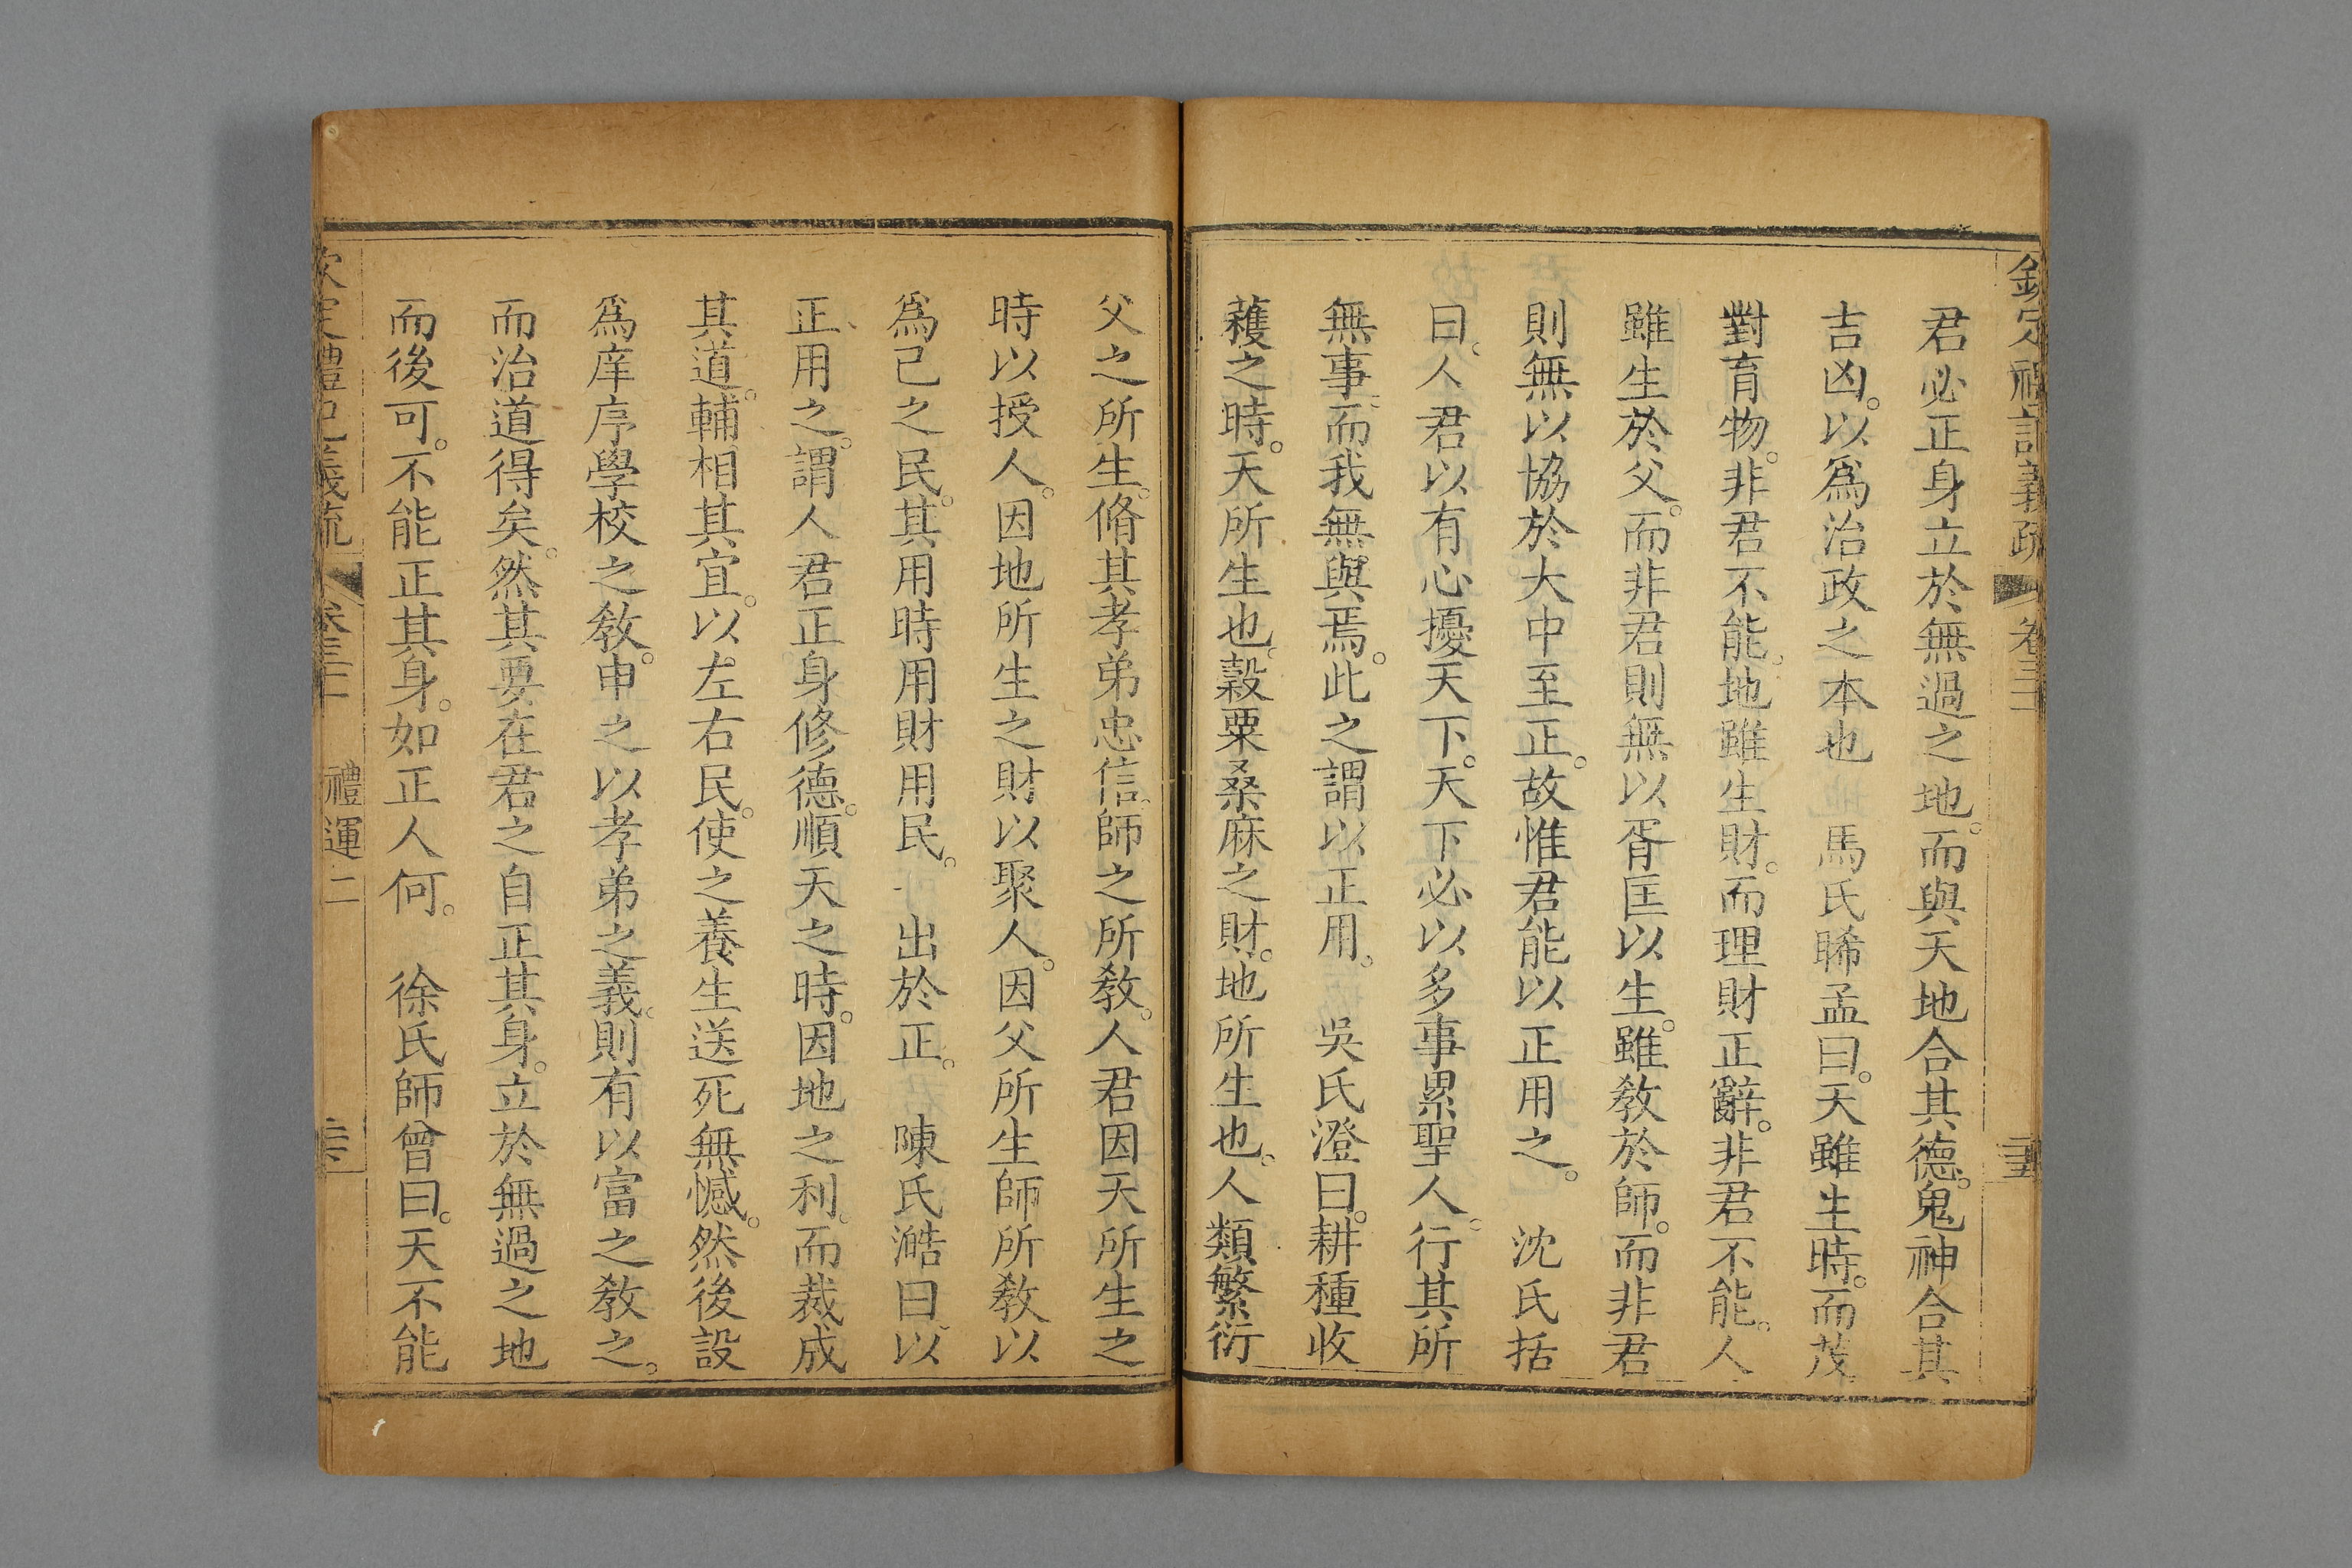 欽定禮記義疏 卷三十
君必正身立於無過之地。而與天地合其德。鬼神合其
吉凶。以爲治政之本也 馬氏睎孟曰。天雖生時。而茂
對育物。非君不能。地雖生財。而理財正辭。非君不能。人
雖生於父。而非君則無以胥匡以生。雖敎於師。而非君
則無以協於大中至正。故惟君能以正用之。 沈氏括
曰。人君以有心擾天下。天下必以多事累聖人。行其所
無事。而我無與焉。此之謂以正用。 吳氏澄曰。耕種收
穫之時。天所生也。穀粟桑麻之財。地所生也。人類繁衍
父之所生。脩其孝弟忠信。師之所敎。人君因天所生之
時以授人。因地所生之財以聚人。因父所生師所敎以
爲己之民。其用時用財用民。 出於正。 陳氏澔曰。以
正用之。謂人君正身修德。順天之時。因地之利。而裁成
其道。輔相其宜。以左右民。使之養生送死無憾。然後設
爲庠序學校之敎。申之以孝弟之義。則有以富之敎之。
而治道得矣。然其要在君之自正其身。立於無過之地
而後可。不能正其身。如正人何。 徐氏師曾曰。天不能
欽定禮記義疏 卷三十 禮運二